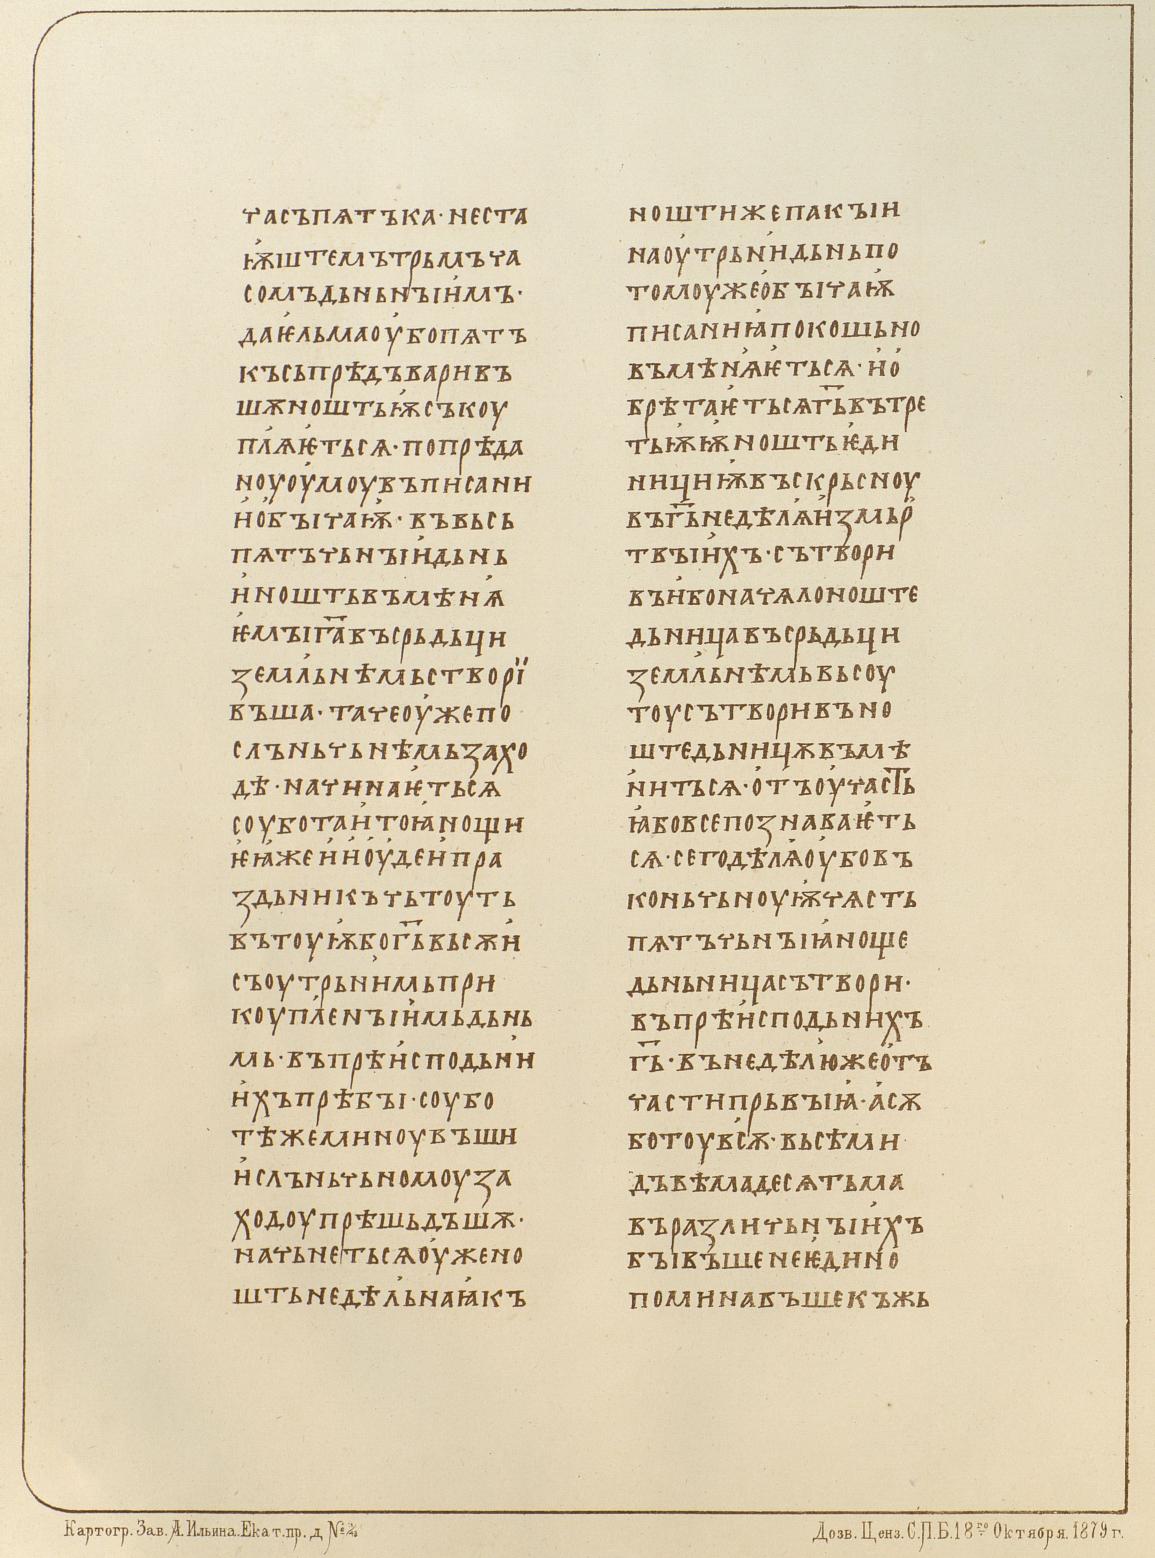 часъпѧтъка· неста
ѭштемътрьмъча
сомъдьньнꙑимъ·
даѥльмаоубопѧтъ
късьпрѣдъваривъ
шѫноштьѭсъкоу
плѧѥтьсѧ·попрѣда
ноуоумоувъписани
иобꙑчаѭ· въвьсь
пѧтъчьнꙑидьнь
иноштьвъмѣнѧ
ѥмꙑг҃авъсрьдьци
ꙁемльнѣмьстворї
въша· тачеоужепо
слъньчьнѣмьꙁахо
дѣ·начинаѥтьсѧ
соуботаитоꙗнощи
ѥꙗжеииоудеипра
ꙁдьникъчьтоуть
вътоуѭбог҃ьвьсѫи
съоутрьнимьпри
коупленꙑимьдьнь
мь·въпрѣисподьни
ихъпрѣбꙑ·соубо
тѣжеминоувъши
ислъньчьномоуꙁа
ходоупрѣшьдъшѫ·
начьнетьсѧоужено
штьнедѣльнаꙗкъ
ноштижепакꙑи
наоутрьниидьньпо
томоужеобꙑчаѭ
писаниꙗпокошьно
въмѣнѧѥтьсѧ·ио
брѣтаѥтьсѧг҃ьвътре
тьѭѭноштьѥди
ницниѭвъскрьсноу
въг҃ьнедѣлѧиꙁмьр
твꙑихъ·сътвори
въибоначѧлоноште
дьницавъсрьдьци
ꙁемльнѣмьвьсоу
тоусътворивъно
штедьницѫвъмѣ
нитьсѧ·отъоучаст҃ь
ꙗбовсепоꙁнаваѥть
сѧ·сегодѣлѧоубовъ
коньчьноуѭчѧсть
пѧтъчьнꙑꙗноще
дьньницасътвори·
въпрѣисподьнихъ
г҃ь·внедѣлюжеотъ
частипрьвꙑꙗ·асѫ
ботоувсѫ·вьсѣми
дъвѣмадесѧтьма
въраꙁличьнꙑихъ
бꙑвъшенеѥдино
поминавъшекъжь
Картогр. Зав. А. Ильина. Екат. пр. д. №24
Дозв. Ценз. С.П.Б. 18го Октября. 1879 г.